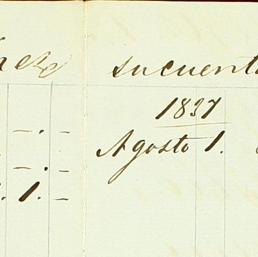 su cuenta
1837
Agosto 1.
- . -
- . -
. 1. -